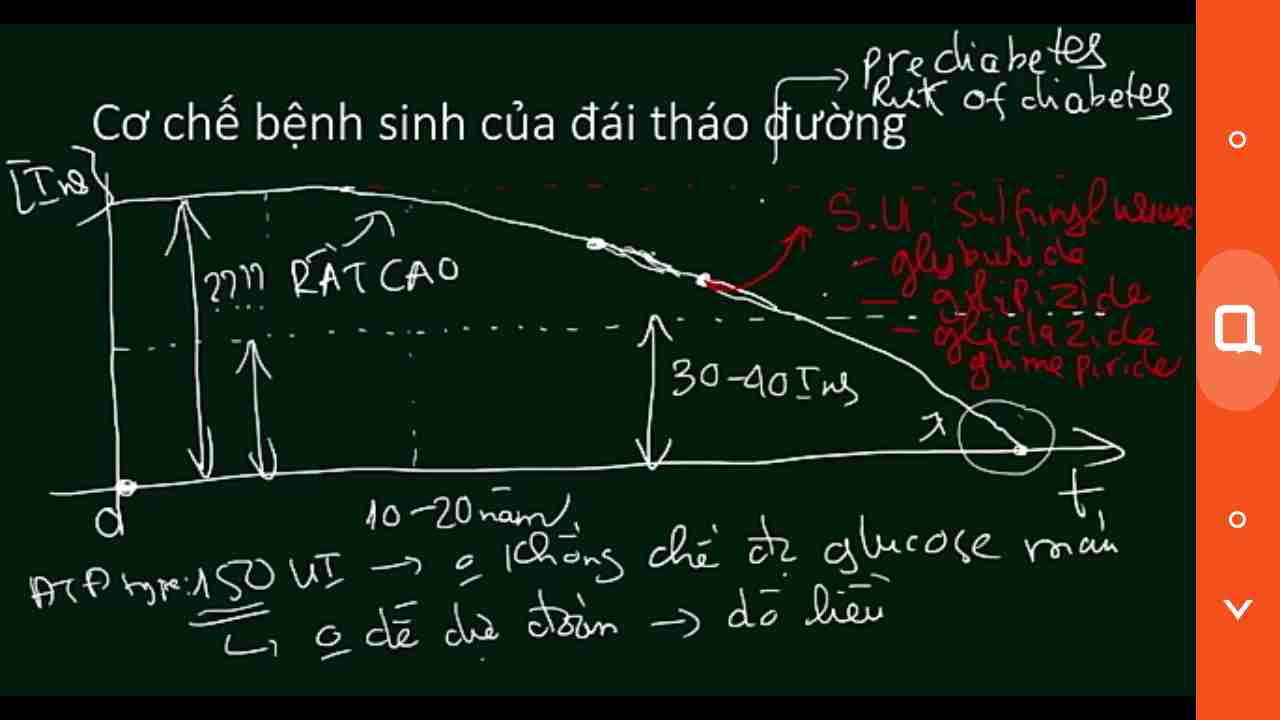 prediabetes
Risk of diabetes
Cơ chế bệnh sinh của đái tháo đường
[Ins]
S.U: Sulfunyl
???? RẤT CAO
- glyburide
- glipizide
- gliclazide
glimepiride
30-40 Ins
t
10-20 năm
150 UI → 0 khống chế đc glucose máu
↳ 0 dễ dự đoán → dò liều